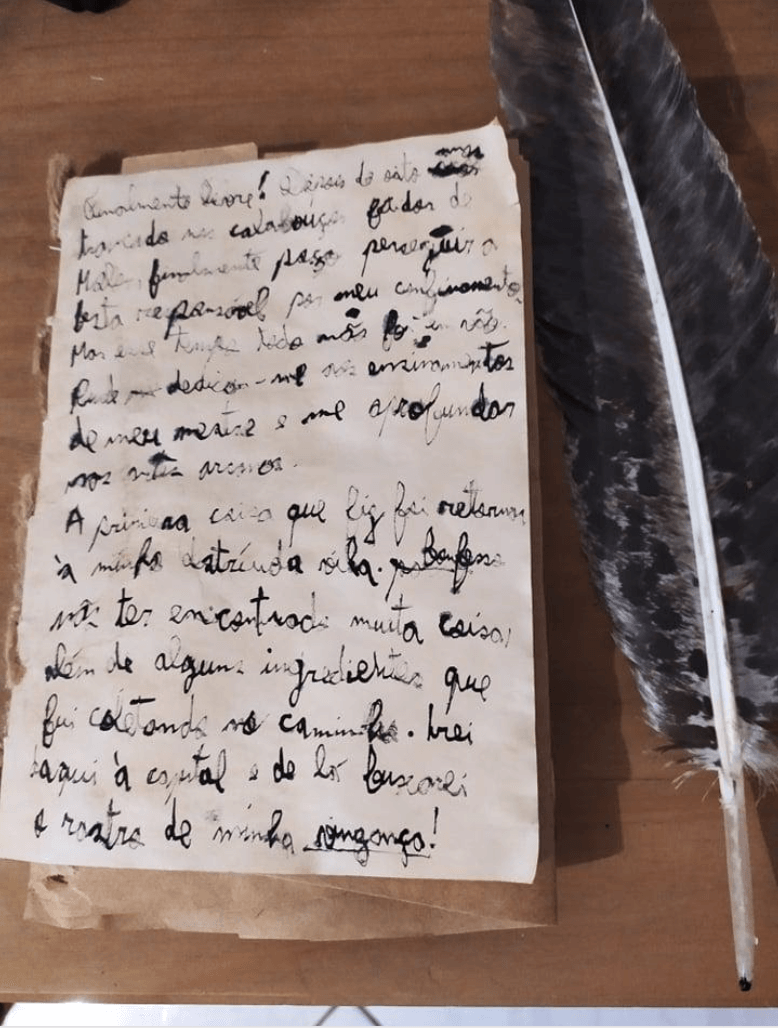 Finalmente livre! Depois de oito anos
trancado nos calabouços de
finalmente posso perseguir a
besta responsável por meu confinamento.
Mas esse tempo todo não foi em vão.
Pude dedicar-me aos ensinamentos
de meu mestre e me aprofundar
nas artes arcanas.
A primeira coisa que fiz foi retornar
à minha destruída vila. confesso
não ter encontrado muita coisa,
além de alguns ingredientes que
fui coletando no caminho. Irei
daqui à capital e de lá buscarei
o rastro de minha vingança!